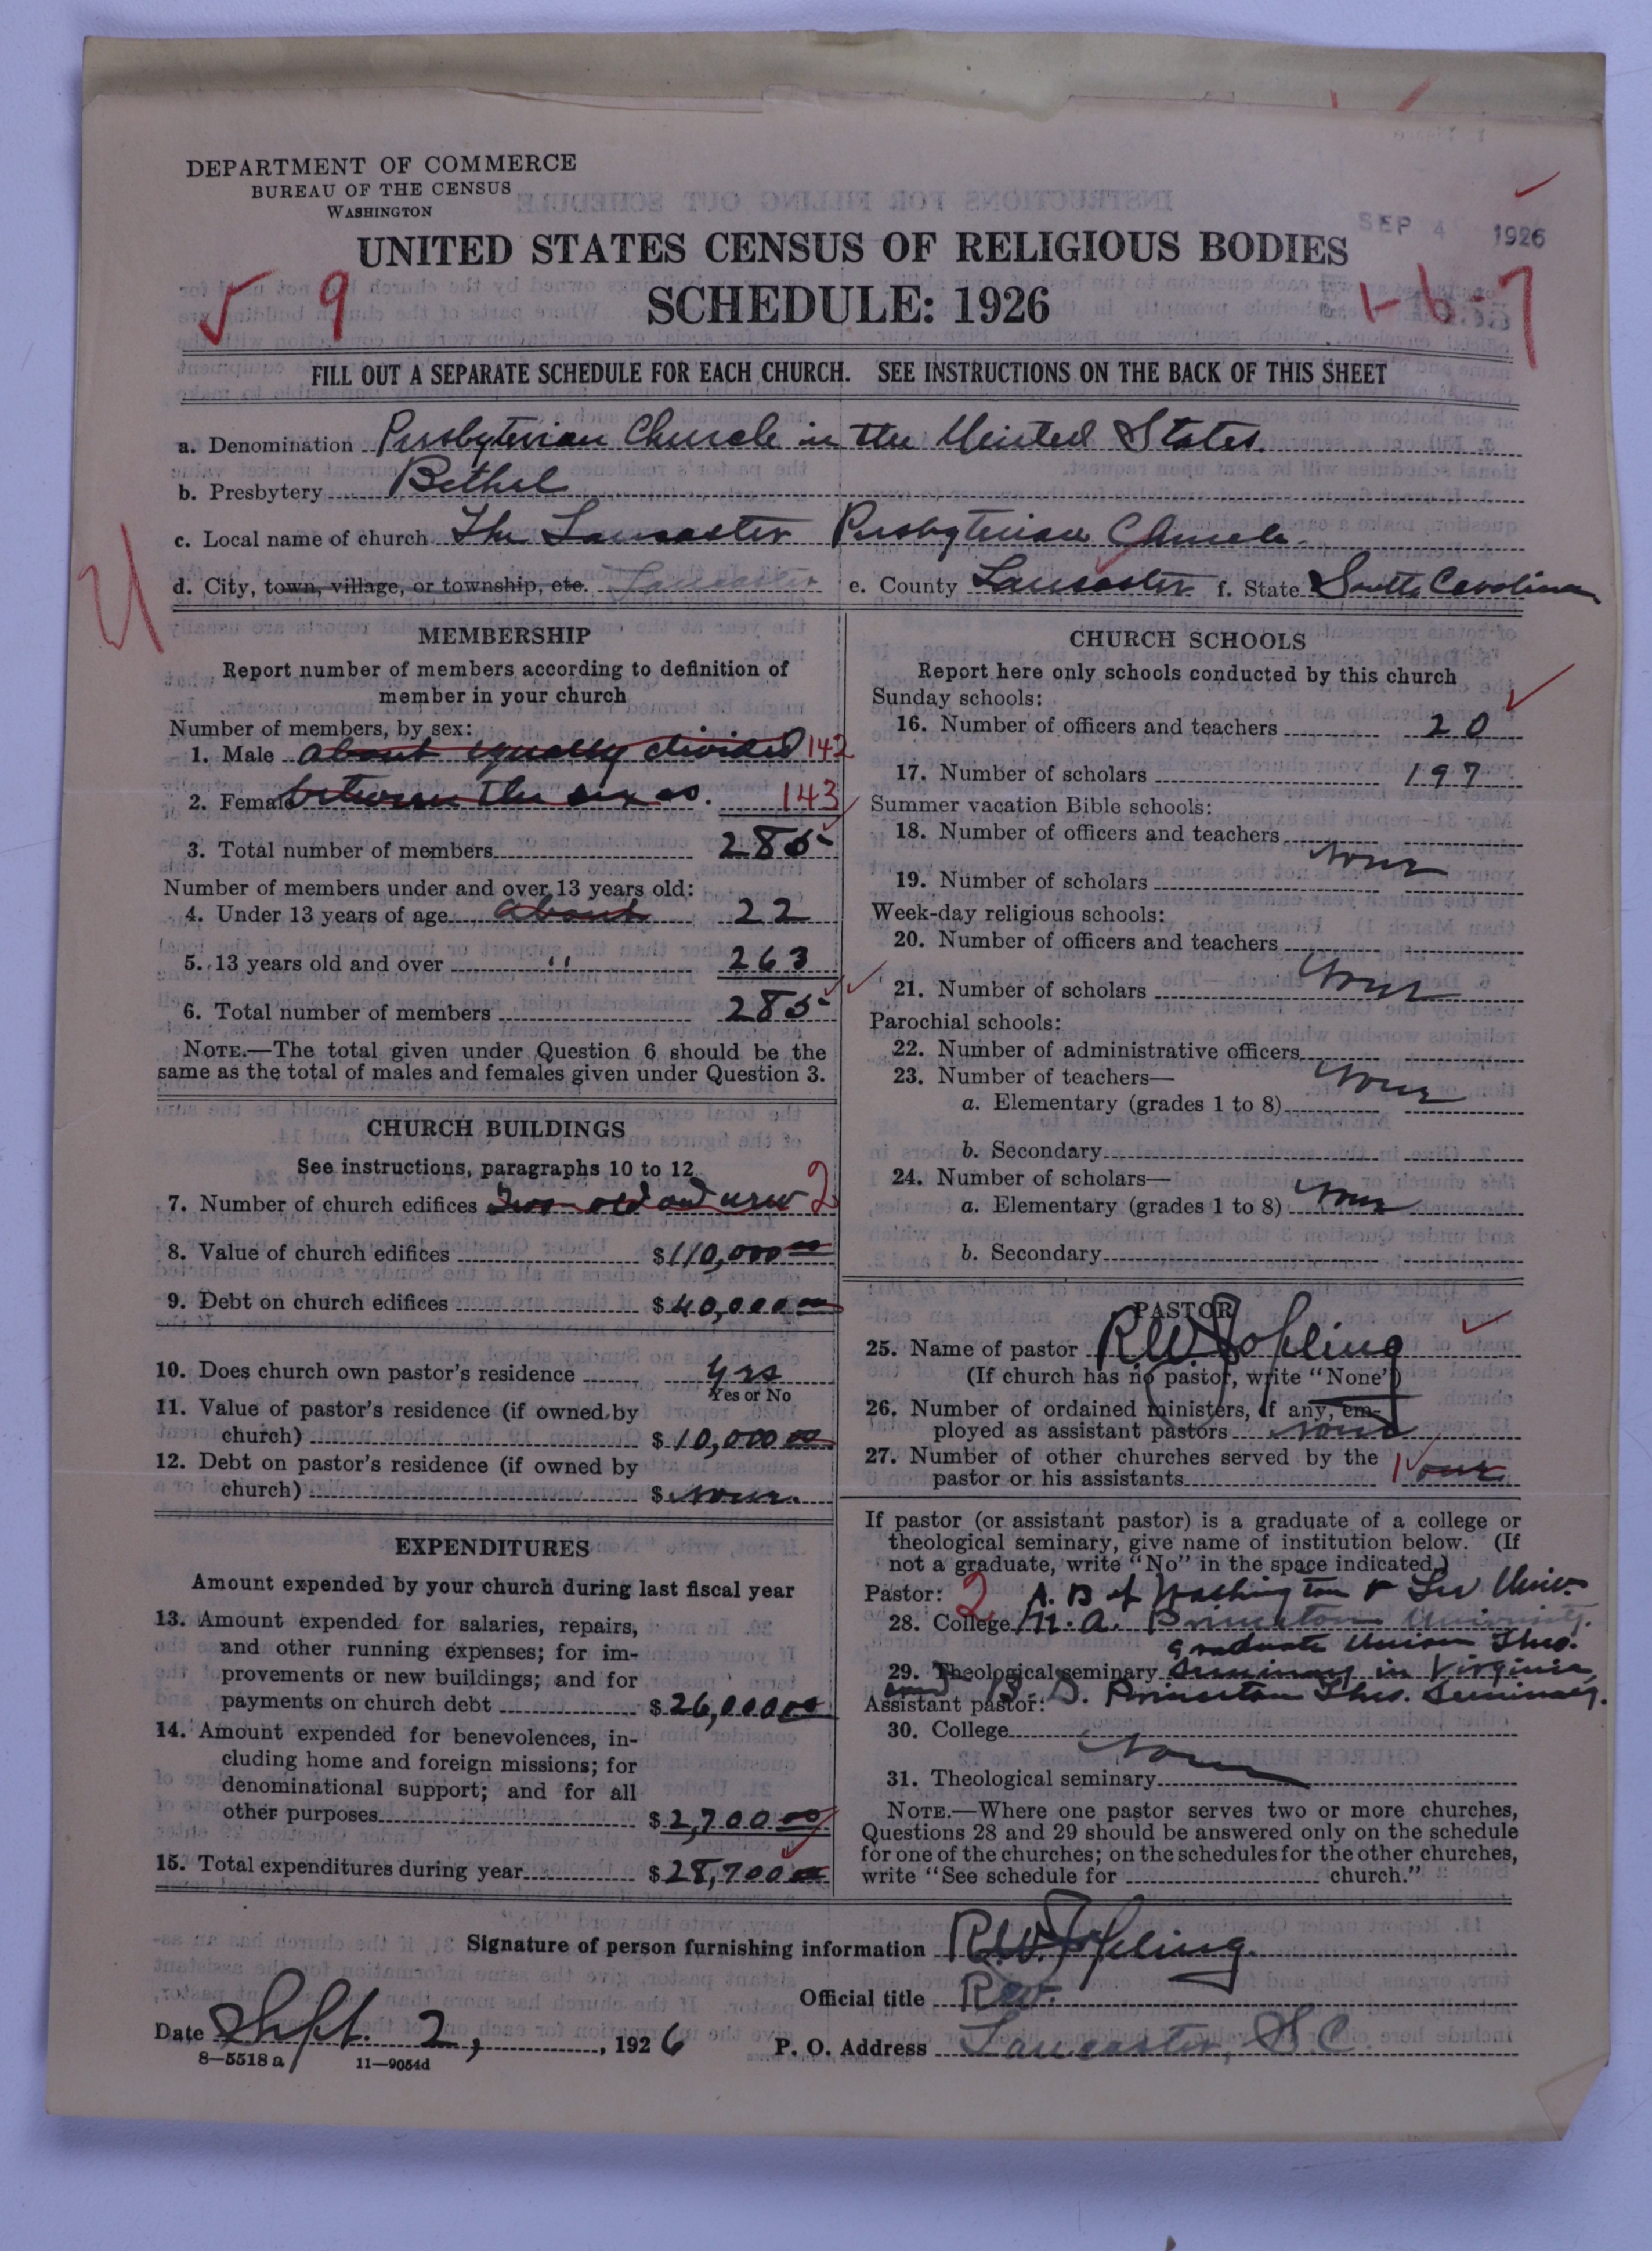 DEPARTMENT OF COMMERCE
BUREAU OF THE CENSUS
WASHINGTON
SEP 4 1926
UNITED STATES CENSUS OF RELIGIOUS BODIES
SCHEDULE: 1926
9
1-6-7
FILL OUT A SEPARATE SCHEDULE FOR EACH CHURCH. SEE INSTRUCTIONS ON THE BACK OF THIS SHEET
a. Denomination Presbyterian Church in the United States
b. Presbytery Bethel
c. Local name of church The Lancaster Presbyterian Church
d. City, town, village, or township, etc. Lancaster e. County Lancaster f. State South Carolina
U
MEMBERSHIP
Report number of members according to definition of
member in your church
Number of members, by sex:
1. Male about equally divided 142
2. Female between the sexes. 143
3. Total number of members 285
Number of members under and over 13 years old:
4. Under 13 years of age about 22
5. 13 years old and over " 263
6. Total number of members 285
NOTE.—The total given under Question 6 should be the
same as the total of males and females given under Question 3.
CHURCH BUILDINGS
See instructions, paragraphs 10 to 12
7. Number of church edifices Two old and new 2
8. Value of church edifices $110,000 00
9. Debt on church edifices $40,000 00
10. Does church own pastor's residence Yes
Yes or No
11. Value of pastor's residence (if owned by
church) $10,000 00
12. Debt on pastor's residence (if owned by
church) $ None.
EXPENDITURES
Amount expended by your church during last fiscal year
13. Amount expended for salaries, repairs,
and other running expenses; for im-
provements or new buildings; and for
payments on church debt $26,000 00
14. Amount expended for benevolences, in-
cluding home and foreign missions; for
denominational support; and for all
other purposes $2,700 00
15. Total expenditures during year $28,700 00
CHURCH SCHOOLS
Report here only schools conducted by this church
Sunday schools:
16. Number of officers and teachers 20
17. Number of scholars 197
Summer vacation Bible schools:
18. Number of officers and teachers
None
19. Number of scholars
Week-day religious schools:
20. Number of officers and teachers
None
21. Number of scholars
Parochial schools:
22. Number of administrative officers
23. Number of teachers— None
a. Elementary (grades 1 to 8)
b. Secondary
24. Number of scholars—
a. Elementary (grades 1 to 8) None
b. Secondary
PASTOR
25. Name of pastor R.W. Jopling
(If church has no pastor, write "None")
26. Number of ordained ministers, if any, em-
ployed as assistant pastors None
27. Number of other churches served by the
pastor or his assistants 1 one
If pastor (or assistant pastor) is a graduate of a college or
theological seminary, give name of institution below. (If
not a graduate, write "No" in the space indicated.)
Pastor: 2 A.B of Washington & Lee Univ.
28. College M.A. Princeton University.
graduate Union Theo.
29. Theological seminary Seminary in Virginia
and B.D. Princeton Theo. Seminary.
Assistant pastor:
30. College
None
31. Theological seminary
NOTE.—Where one pastor serves two or more churches,
Questions 28 and 29 should be answered only on the schedule
for one of the churches; on the schedules for the other churches,
write "See schedule for church."
Signature of person furnishing information R.W. Jopling.
Official title Rev.
Date Sept. 2, 1926 P. O. Address Lancaster, S.C.
8—5518a 11—9054d